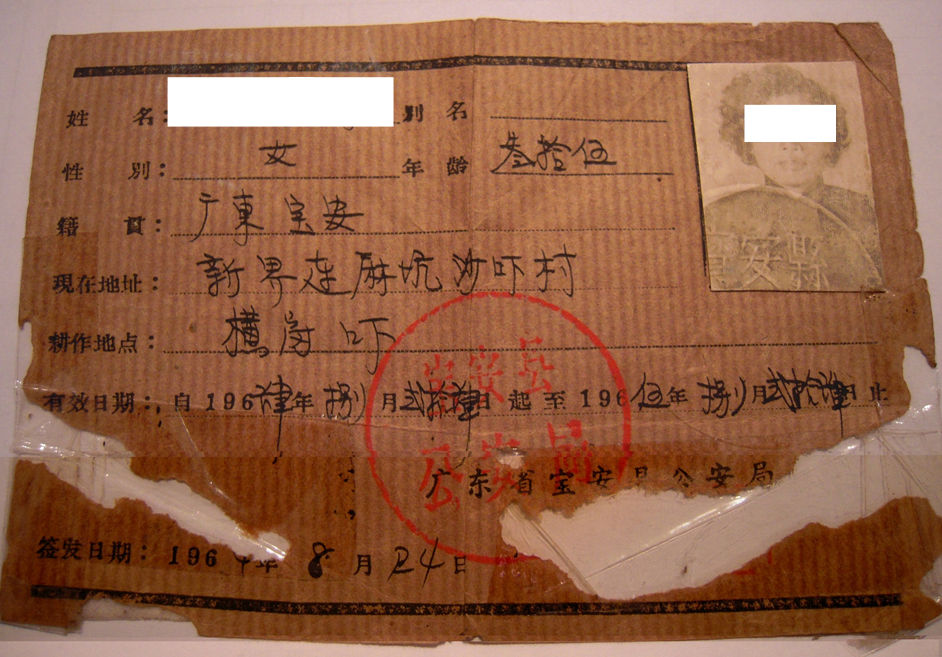 姓 名： 别 名
性 别： 女 年 龄 叁拾伍
籍 贯： 广東宝安
現在地址： 新界莲麻坑沙吓村
耕作地点： 横 吓
有效日期： 自 196肆年 捌月 贰拾肆日 起至 196伍年 捌月 贰拾肆日 止
广东省宝安县公安局
签发日期： 1964年 8月 24日
宝安县
公安局
寶安縣